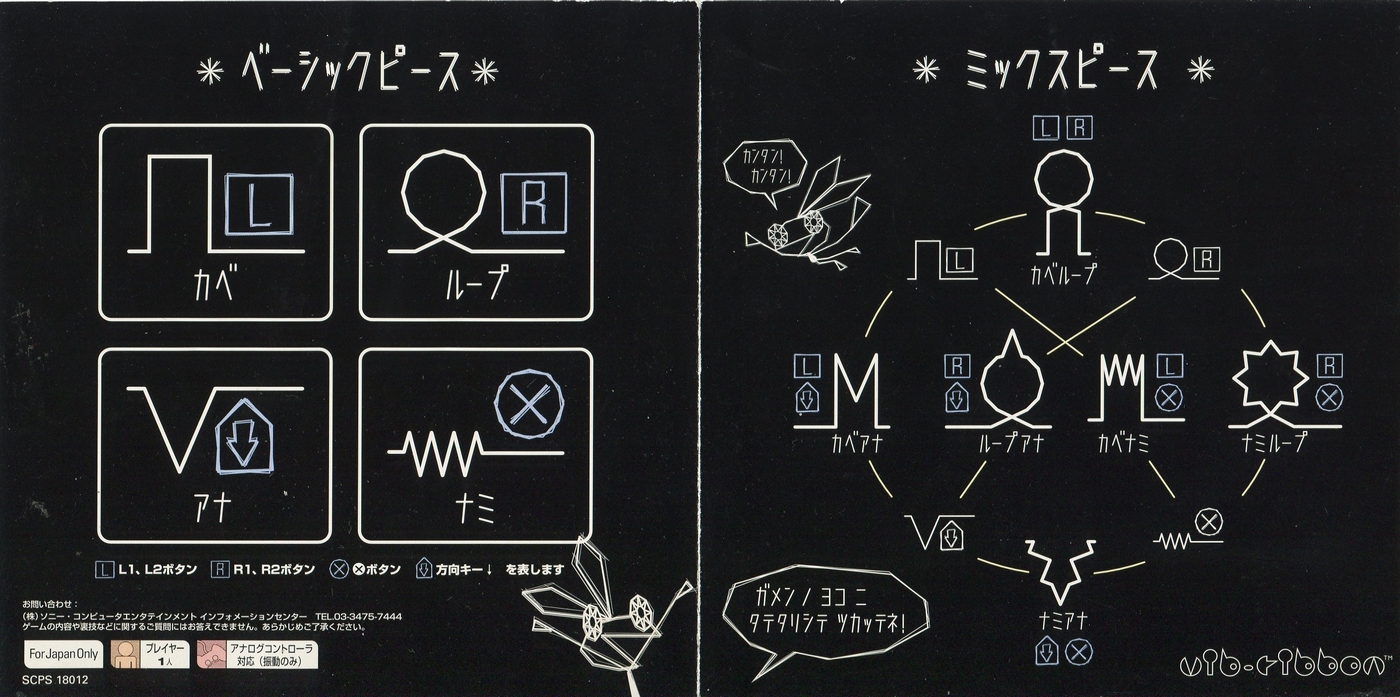 * ベーシックピース *
L
カベ
R
ループ
アナ
ナミ
L L1、L2ボタン R R1、R2ボタン ⊗ ⊗ボタン 方向キー↓ を表します
お問い合わせ：
(株)ソニー・コンピュータエンタテインメント インフォメーションセンター TEL.03-3475-7444
ゲームの内容や裏技などに関するご質問にはお答えできません。あらかじめご了承ください。
For Japan Only
プレイヤー
1人
アナログコントローラ
対応（振動のみ）
SCPS 18012
* ミックスピース *
L R
カンタン!
カンタン!
カベループ
L
R
L
カベアナ
R
ループアナ
L
カベナミ
R
ナミループ
ナミアナ
ガメンノヨコニ
タテタリシテ ツカッテネ!
vib-ribbon™